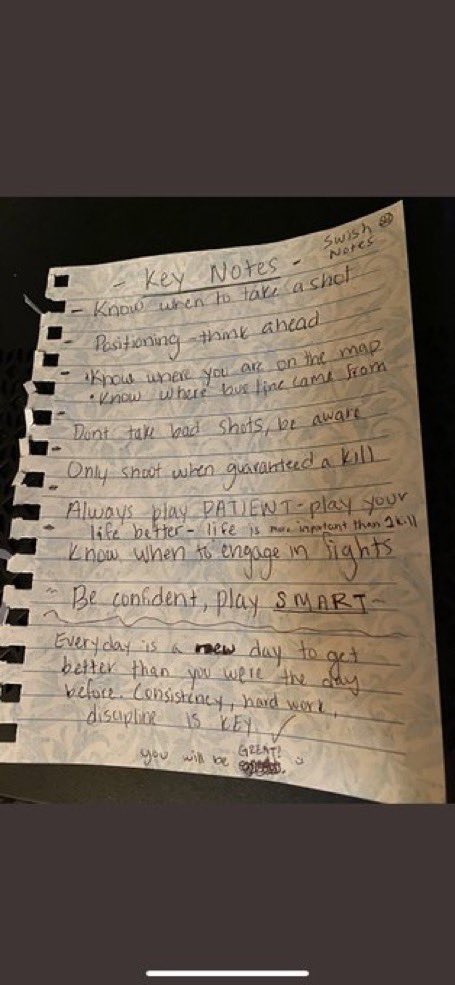 Swish
Notes
- Key Notes -
- Know when to take a shot
- Positioning - think ahead
- •Know where you are on the map
•Know where bus line came from
- Dont take bad shots, be aware
- Only shoot when guaranteed a kill
- Always play PATIENT - play your
life better - life is more important than 1 kill
- Know when to engage in fights
~ Be confident, play SMART ~
Everyday is a new day to get
better than you were the day
before. Consistency, hard work,
discipline IS KEY ✓
GREAT!
you will be